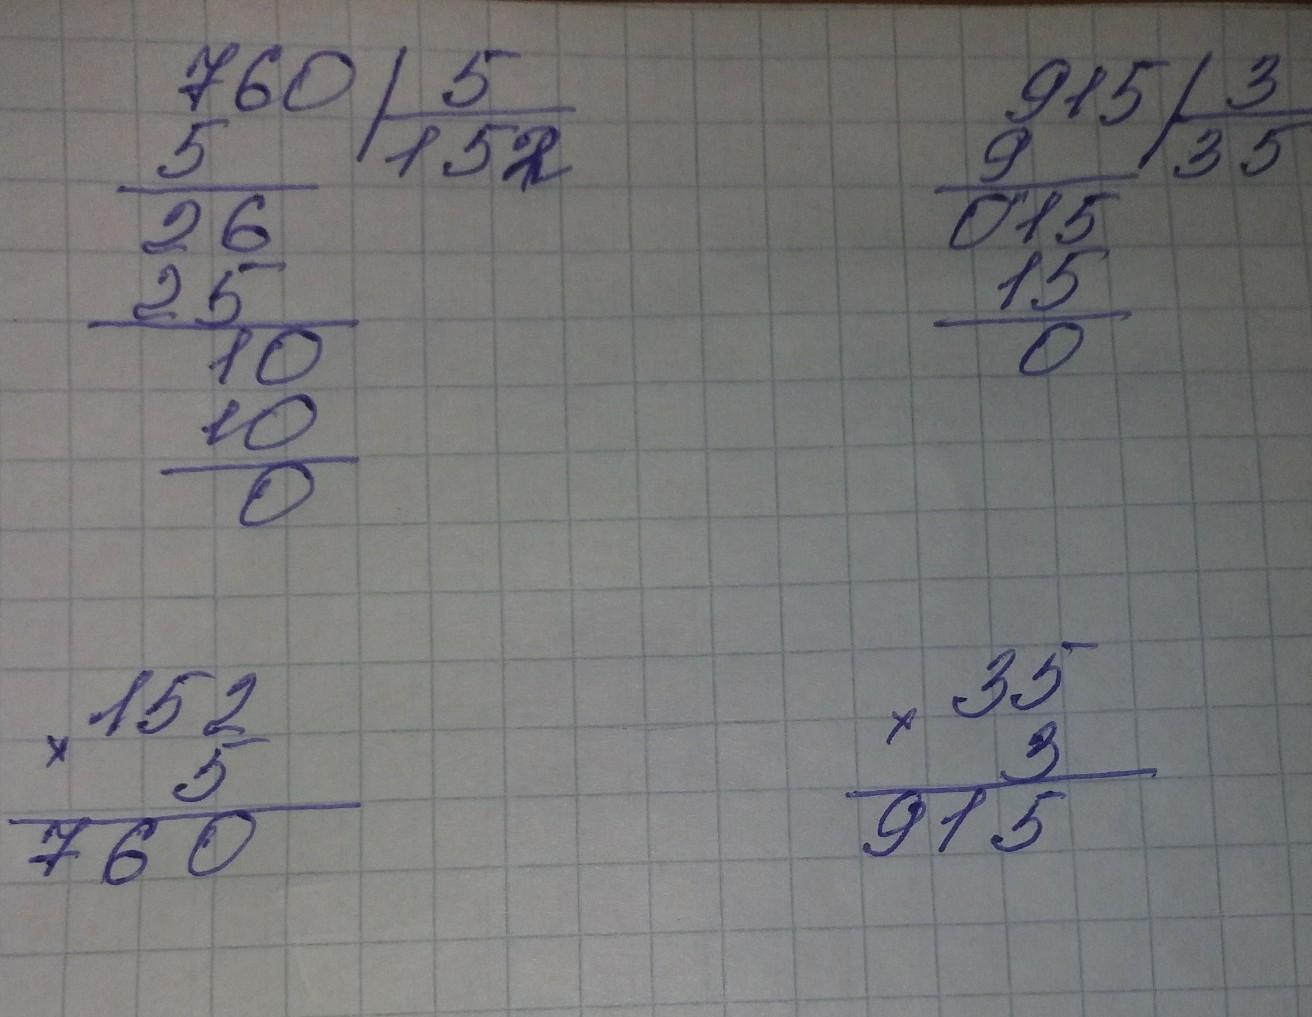 760 5
5 152
26
25
10
10
0
915 3
9 35
015
15
0
152
× 5
760
35
× 3
915